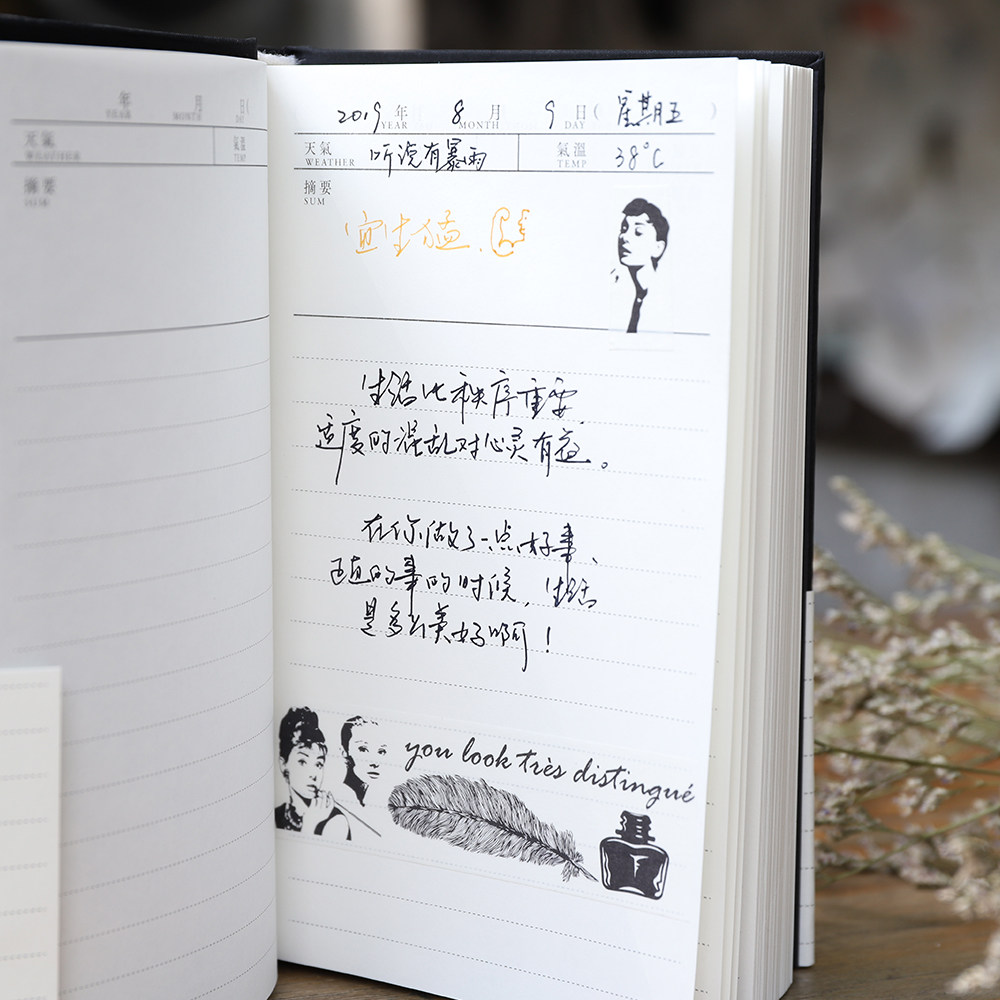 年 月 日(
YEAR MONTH DAY
天氣
WEATHER
氣溫
TEMP
摘要
SUM
2019 年 8 月 9 日( 星期五 )
YEAR MONTH DAY
天氣 听说有暴雨 氣溫 38°C
WEATHER TEMP
摘要
SUM
宜生猛、
生活比秩序重要,
适度的混乱对心灵有益。
在你做了一点好事、
正直的事的时候,生活
是多么美好啊!
you look très distingué